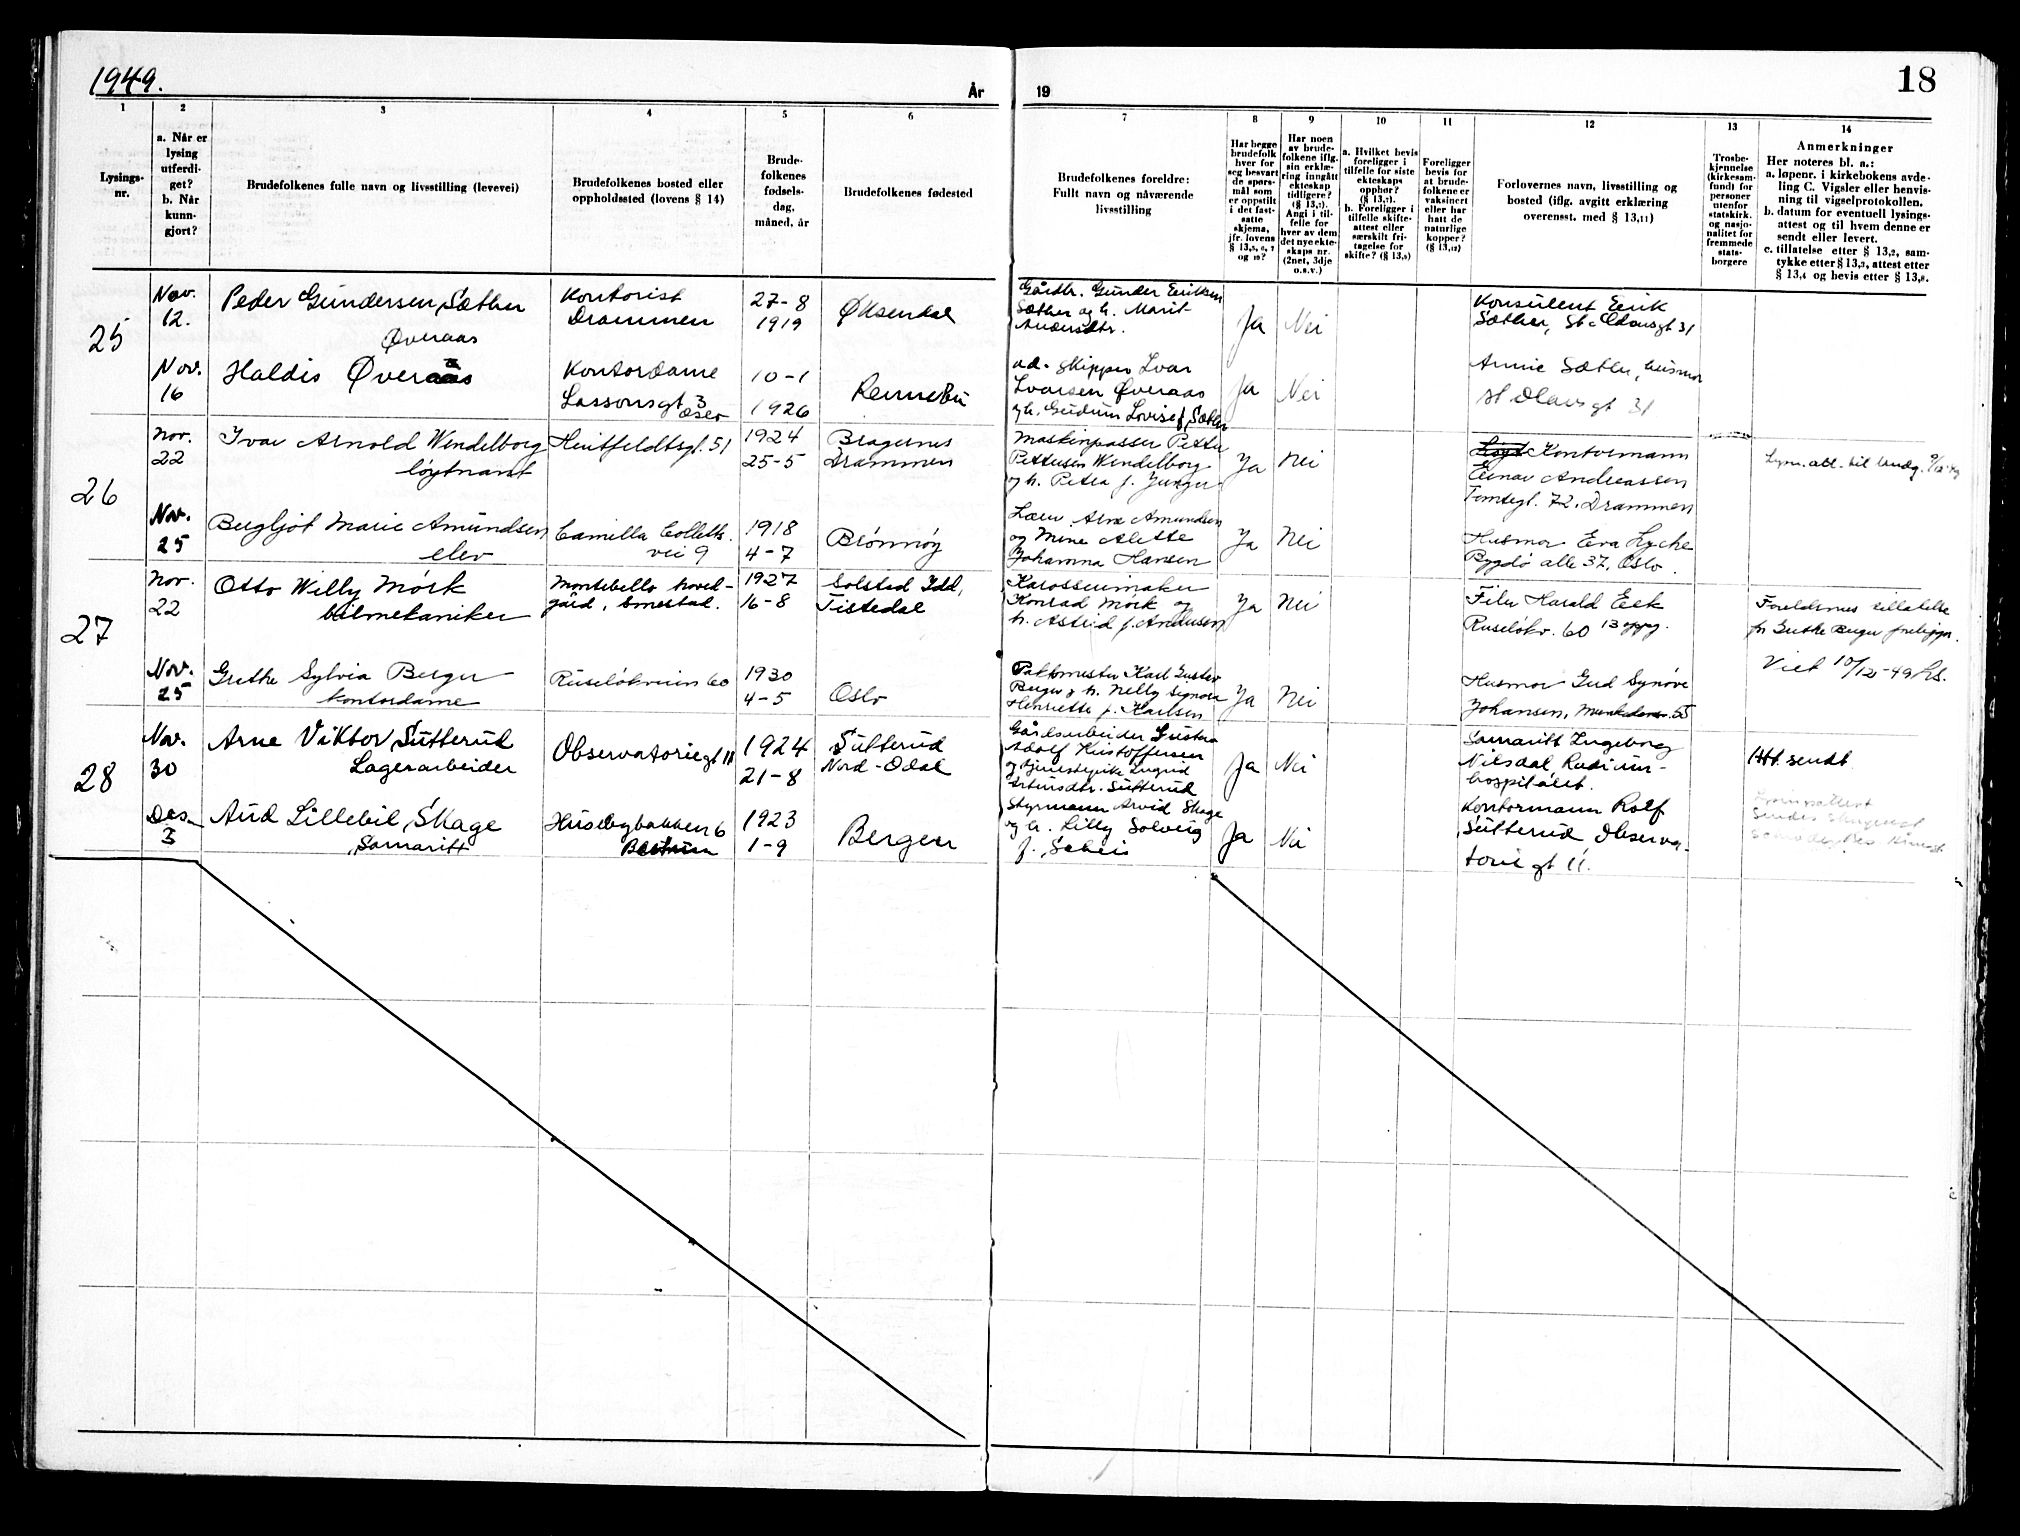 1949.
År
19
18
1
2
3
4
5
6
7
8
9
10
11
12
13
14
Lysings-
nr.
a. Når er
lysing
utferdi-
get?
b. Når
kunn-
gjort?
Brudefolkenes fulle navn og livsstilling (levevei)
Brudefolkenes bosted eller
oppholdssted (lovens § 14)
Brude-
folkenes
fødsels-
dag,
måned, år
Brudefolkenes fødested
Brudefolkenes foreldre:
Fullt navn og nåværende
livsstilling
Har begge
brudefolk
hver for
seg besvart
de spørs-
mål som
er oppstilt
i det fast-
satte
skjema,
jfr. lovens
Har noen
av brude-
folkene iflg.
sin erklæ-
ring inngått
ekteskap
tidligere?
(§ 13,7).
Angi i til-
felle for
hver av dem
det nye ekte-
skaps nr.
(2net, 3dje
o.s.v.)
a. Hvilket bevis
foreligger i
tilfelle for siste
ekteskaps
opphør?
(§ 13,7).
b. Foreligger i
tilfelle skifte-
attest eller
særskilt fri-
tagelse for
skifte? (§ 13,9)
Foreligger
bevis for
at brude-
folkene er
vaksinert
eller har
hatt de
naturlige
kopper?
(§ 13,12)
Forlovernes navn, livsstilling og
bosted (iflg. avgitt erklæring
overensst. med § 13,11)
Trosbe-
kjennelse
(kirkesam-
fund) for
personer
utenfor
statskirk.
og nasjo-
nalitet for
fremmede
stats-
borgere
Anmerkninger
Her noteres bl. a.:
a. løpenr. i kirkebokens avde-
ling C. Vigsler eller henvis-
ning til vigselprotokollen.
b. datum for eventuell lysings-
attest og til hvem denne er
sendt eller levert.
c. tillatelse etter § 13,2, sam-
tykke etter § 13,3, attest etter
§ 13,4 og bevis etter § 13,8.
25
Nov.
12.
Peder Gundersen Sæther
Øveraas
Kontorist
Drammen
27-8
1919
Øksendal
Gårdbr. Gunder Eriksen
Sæther og h. Marit
Andersdtr.
Ja
Nei
Konsulent Eerik
Sæther, St. Olavsgt 31
Nov.
16
Haldis Øveraas
Kontordame
Lassonsgt 3
Oslo
10-1
1926
Rennebu
ad. Skipper Ivar
Ivarsen Øveraas
og h. Gudrun Lovise f. Sæther
Ja
Nei
Annie Sæther, husmor
St Olavsgt 31
26
Nov.
22
Ivar Arnold Wendelborg
løytnant
Huitfeldtsgt. 51
1924
25-5
Bragernes
Drammen
Maskinpasser Petter
Pettersen Wendelborg
og h. Petra f.
Ja
Nei
Kontormann
Einar Andreassen
Tomtegt. 72, Drammen
Lysn. att. til
Nov.
25
Bergljot Marie Amundsen
elev
Camilla Colletts
vei 9
1918
4-7
Brønnøy
Lærer Arne Amundsen
og Mine Alette
Johanna Hansen
Ja
Nei
Husmor Eva Lyche
Bygdø alle 37, Oslo.
27
Nov.
22
Otto Willy Mörk
bilmekaniker
Montebello hoved-
gård, Smestad.
1927
16-8
Solstad Idd,
Tistedal
Karosserimaker
Konrad Mörk og
h. Astrid f. Andersen
Ja
Nei
Filer Harald Eek
Ruseløkv. 60 13 oppg.
Foreldrenes tillatelse
for Grethe Berger foreligger.
Viet 10/12-49 hs.
Nov.
25
Grethe Sylvia Berger
kontordame
Ruseløkveien 60
1930
4-5
Oslo
Karl Gustav
Berger og h. Nelly Signora
Henriette f. Karlsen
Ja
Nei
Husmor Gud Synøve
Johansen, 55
28
Nov.
30
Arne Viktor Sutterud
Lagerarbeider
Observatoriegt 11
1924
21-8
Sutterud
Nord-Odal
Gårdsarbeider Gustav
Adolf Kristoffersen
og tjenestepike Ingrid
Sutterud
Ja
Nei
Samaritt Ingeborg
Nilsdal Radium-
hospitalet.
Att. sendt
Des.
3
Aud Lillebil Skage
Samaritt
Husebybakken 6
Bestum
1923
1-9
Bergen
Styrmann Arvid Skage
og h. Lilly Solveig
f. Scheis
Ja
Nei
Kontormann Rolf
Sutterud Observa-
torie gt 11.